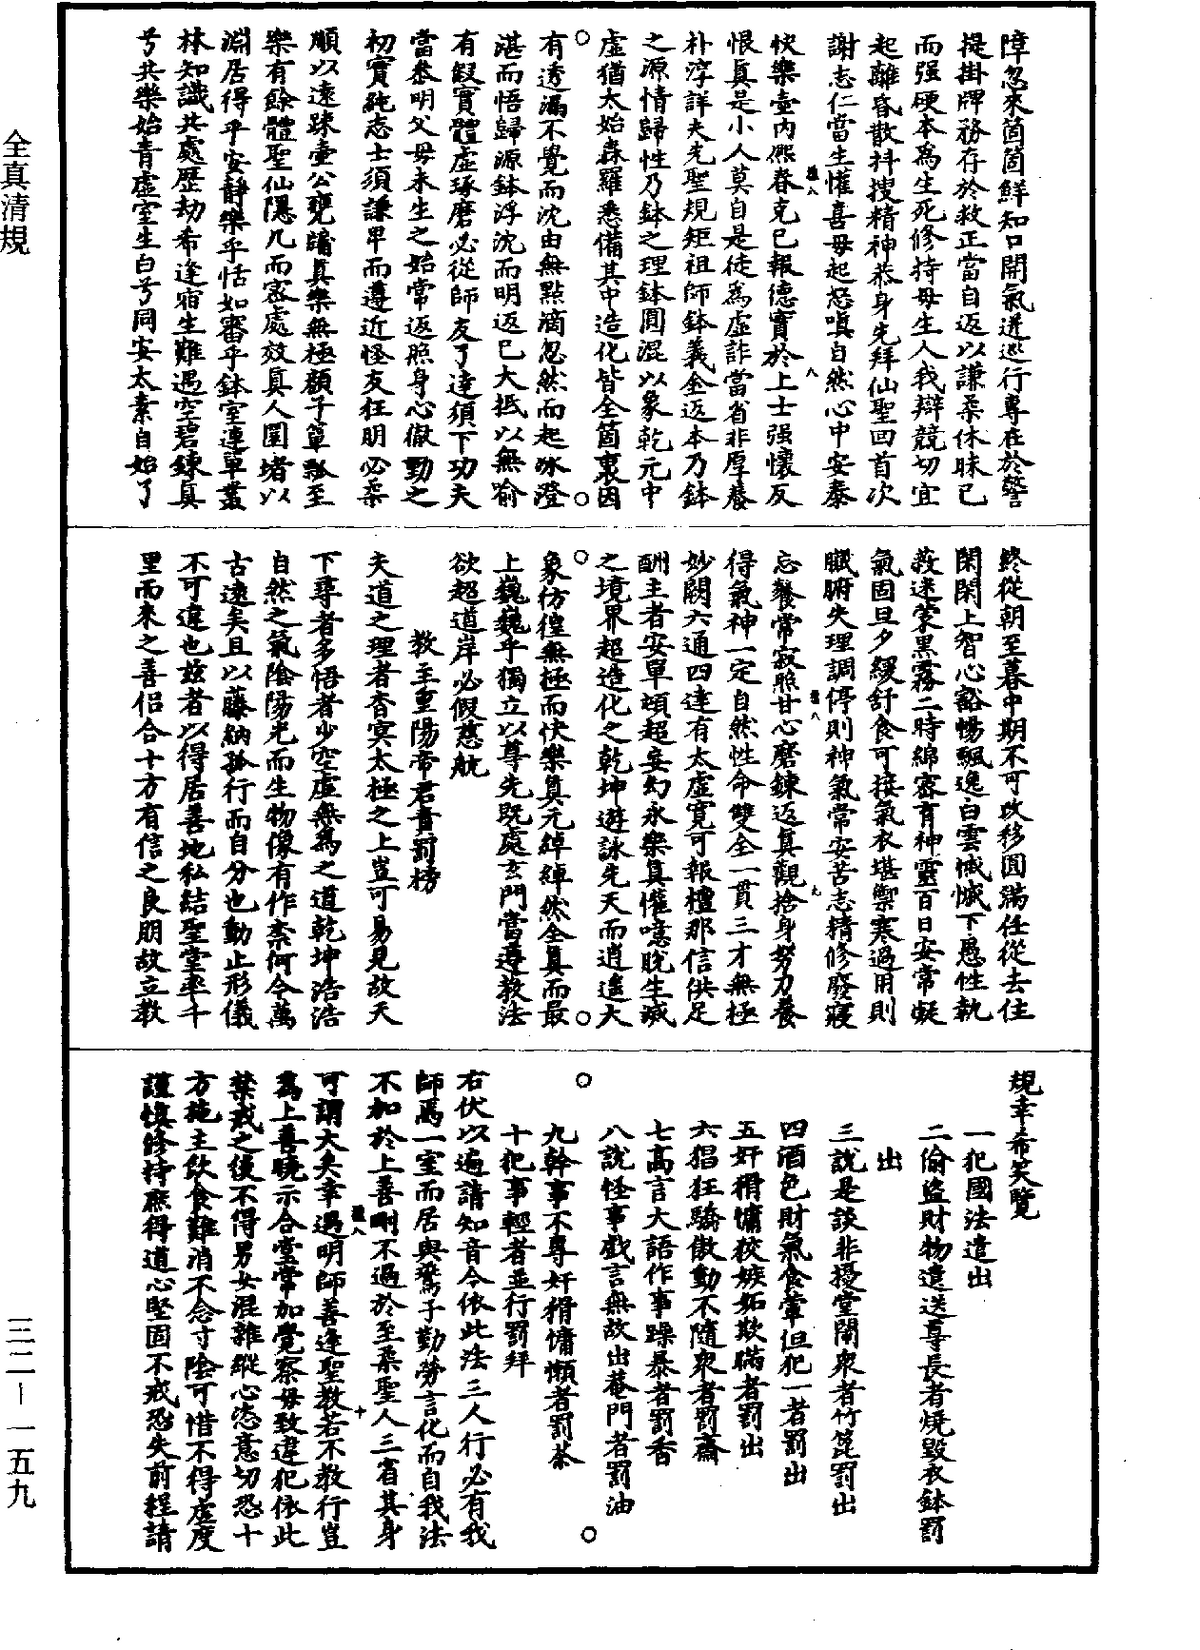 全真清規
三二－一五九
障忽來箇箇鮮知口開氣迸巡行專在於警
提掛牌務存於救正當自返以謙柔休昧已
而强硬本為生死修持毋生人我辯競切宜
起離昏散抖搜精神恭身先拜仙聖回首次
謝志仁當生懽喜毋起怒嗔自然心中安泰
快樂壺內熈春克己報德實於上士强懷反
恨真是小人莫自是徒為虛詐當省非厚養
朴淳詳夫先聖規矩祖師鉢義金返本乃鉢
之源情歸性乃鉢之理鉢圓混以象乾元中
虛猶太始森羅悉備其中造化皆全箇裏因
有透漏不覺而沈由無點滴忽然而起冰澄
湛而悟歸源鉢浮沈而明返已大抵以無喻
有叚實體虛琢磨必從師友了達須下功夫
當叅明父母未生之始常返照身心倣動之
初實純志士須謙畢而遵近怪友狂明必柔
順以遠踈壺公甕牖真樂無極顏子簞瓢至
樂有餘體聖仙隱几而宻處效真人圜堵以
淵居得乎安靜樂乎恬如審乎鉢室連單叢
林知識共處歷劫希逢宿生難遇空碧鍊真
兮共樂始青虛室生白兮同安太素自始了
終從朝至暮中期不可改移圓滿任從去住
閑閑上智心豁暢飄逸白雲慽慽下愚性執
着迷蒙黑霧二時綿宻育神靈百日安常凝
氣固旦夕緩舒食可接氣衣堪禦寒過用則
臟腑失理調停則神氣常安苦志精修廢寢
忘餐常寂照甘心磨鍊返真觀捨身努力養
得氣神一定自然性命雙全一貫三才無極
妙闢六通四達有太虛寬可報檀那信供足
酬主者安單頓超妄幻永樂真懽噫脫生滅
之境界超造化之乾坤遊詠先天而逍遙大
象仿徨無極而快樂真元綽綽然全真而最
上巍巍乎獨立以尊先既處玄門當遵教法
欲超道岸必假慈航
教主重陽帝君責罰榜
夫道之理者杳冥太極之上豈可易見故天
下尋者多悟者少空虛無為之道乾坤浩浩
自然之氣陰陽光而生物像有作柰何今萬
古遠矣且以藤納孤行而自分也動止形儀
不可違也兹者以得居善地私結聖堂率千
里而來之善侶合十方有信之良朋故立教
規幸希笑覽
一犯國法遣出
二偷盜財物遺送尊長者燒毀衣鉢罰
出
三說是談非擾堂閙衆者竹箆罰出
四酒色財氣食葷但犯一者罰出
五奸猾慵狡嫉妬欺瞞者罰出
六猖狂驕傲動不隨衆者罰齋
七高言大語作事躁暴者罰香
八說怪事戲言無故出菴門者罰油
九幹事不專奸猾慵懶者罰茶
十犯事輕者並行罰拜
右伏以遍請知音今依此法三人行必有我
師焉一室而居與鶖子勤勞言化而自我法
不加於上善剛不過於至柔聖人三省其身
可謂大矣幸遇明師善逢聖教若不教行豈
為上善曉示合堂常加覺察毋致違犯依此
禁戒之後不得男女混雜縱心恣意切恐十
方施主飲食難消不念寸陰可惜不得虛度
謹慎修持庶得道心堅固不戒恐失前程請